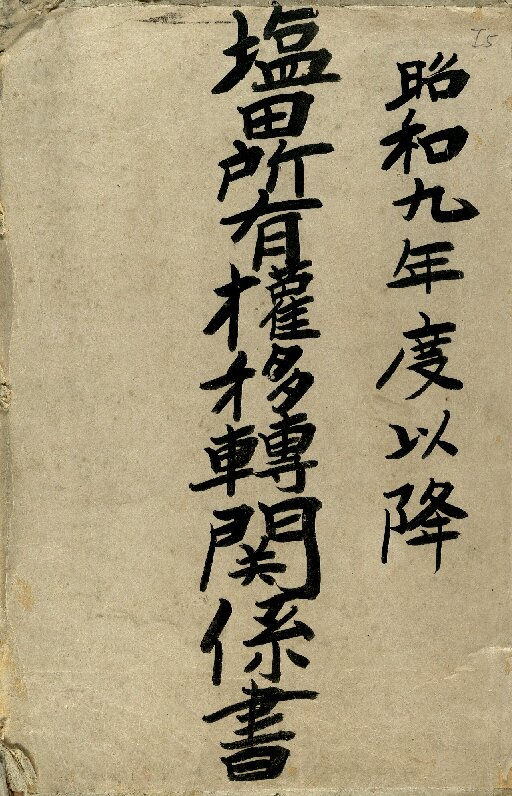 昭和九年度以降
塩田所有權移轉関係書
I5